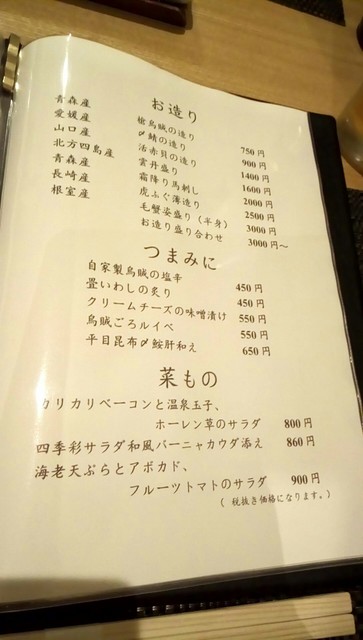 お造り
青森産 槍烏賊の造り 750円
愛媛産 〆鯖の造り 900円
山口産 活赤貝の造り 1400円
北方四島産 雲丹盛り 1600円
青森産 霜降り馬刺し 2000円
長崎産 虎ふぐ薄造り 2500円
根室産 毛蟹姿盛り(半身) 3000円
お造り盛り合わせ 3000円〜
つまみに
自家製烏賊の塩辛 450円
畳いわしの炙り 450円
クリームチーズの味噌漬け 550円
烏賊ごろルイベ 550円
平目昆布〆鮟肝和え 650円
菜もの
カリカリベーコンと温泉玉子、
ホーレン草のサラダ 800円
四季彩サラダ和風バーニャカウダ添え 860円
海老天ぷらとアボカド、
フルーツトマトのサラダ 900円
(税抜き価格になります。)